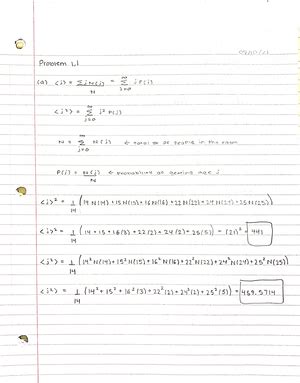 Problem 1.1
(a) <j> = Σ j N(j) / N = Σ_{j=0}^{∞} j P(j)
<j²> = Σ_{j=0}^{∞} j² P(j)
N = Σ_{j=0}^{∞} N(j) ← total # of people in the room
P(j) = N(j) / N ← probability of getting age j
<j>² = 1/14 (14 N(14) + 15 N(15) + 16 N(16) + 22 N(22) + 24 N(24) + 25 N(25))
<j>² = 1/14 (14 + 15 + 16(3) + 22(2) + 24(2) + 25(5)) = (21)² = 441
<j²> = 1/14 (14² N(14) + 15² N(15) + 16² N(16) + 22² N(22) + 24² N(24) + 25² N(25))
<j²> = 1/14 (14² + 15² + 16²(3) + 22²(2) + 24²(2) + 25²(5)) = 459.5714